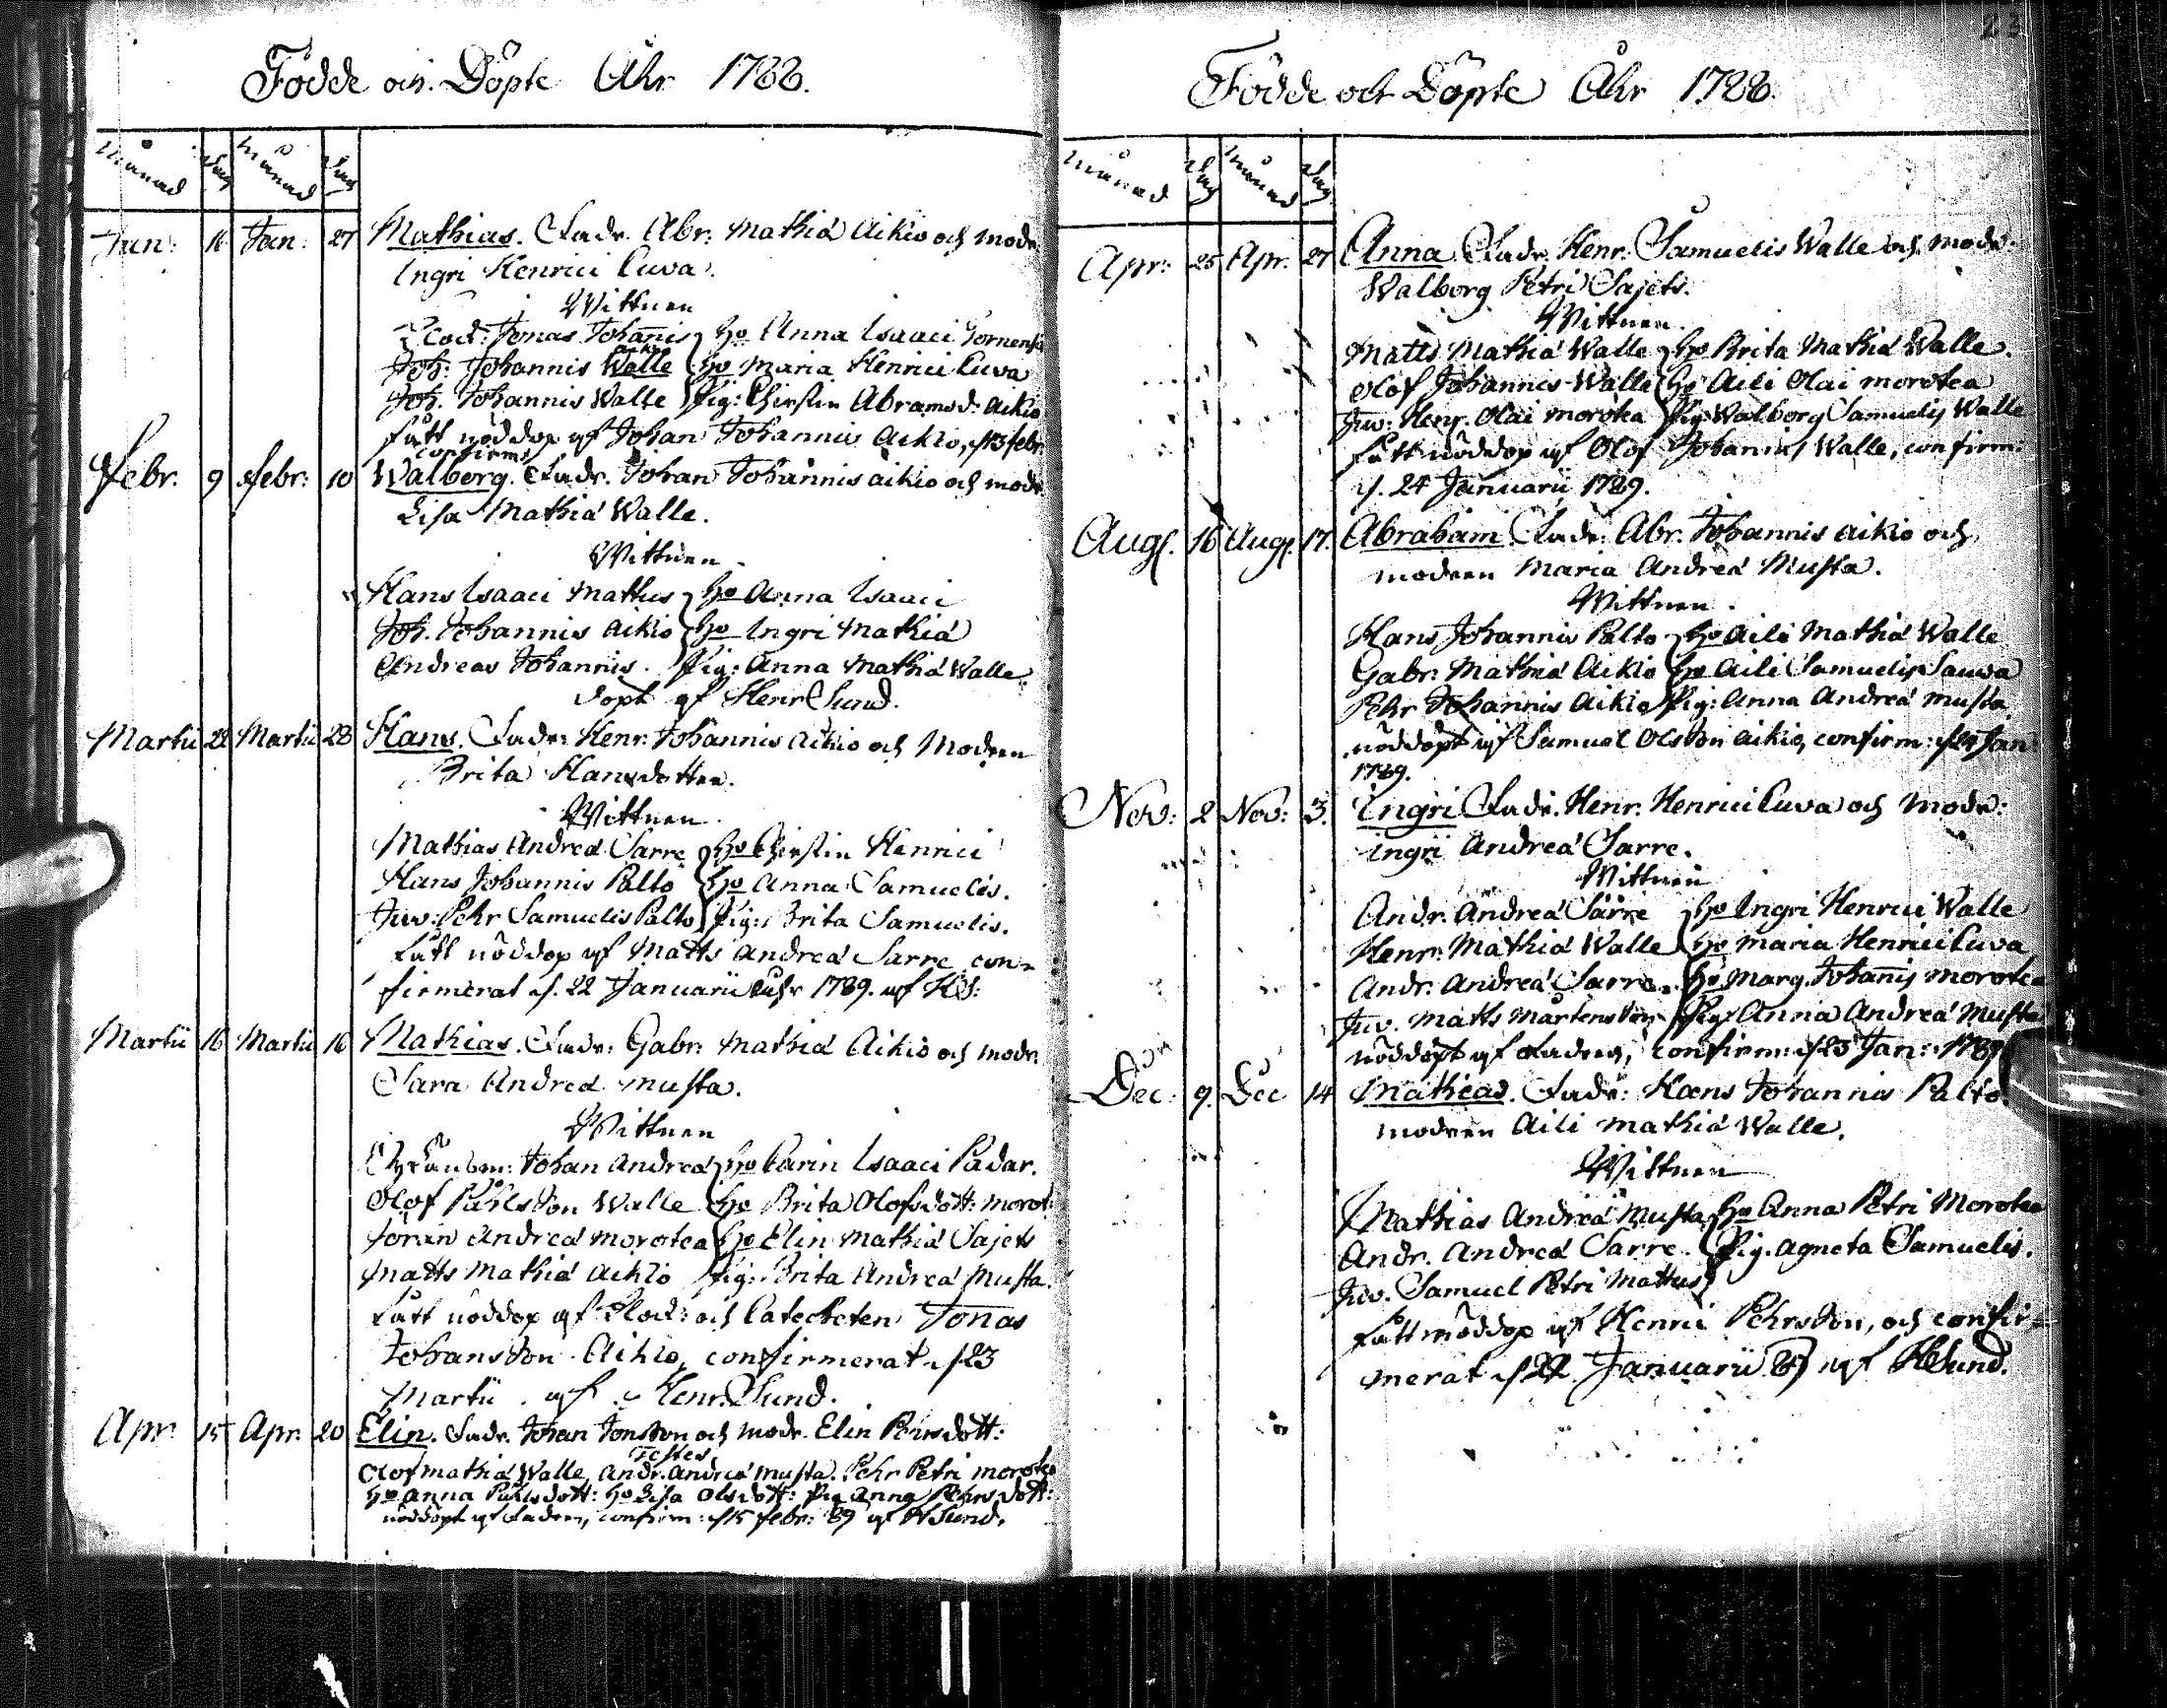 Födde och Döpte Åhr 1788.
Månad Dag Månad Dag
Jan: 16 Jan: 27 Mathias. Fadr. Abr: Mathiæ Aikio och modr:
Ingri Henrici Cuva.
Wittnen
Clock: Jonas Johannis Ho Anna Isaaci Tornensis
Joh: Johannis Walle Aikio Ho Maria Henrici Cuva
Joh. Johannis Walle Pig: Chirstin Abramsd: Aikio
fått nöddop af Johan Johannis Aikio, d. 13 febr.
confirm:
Febr. 9 Febr: 10 Walborg. Fadr. Johan Johannis Aikio och modr.
Lisa Mathiæ Walle.
Wittnen
Hans Isaaci Mattus Ho Anna Isaaci
Joh. Johannis Aikio Ho Ingri Mathiæ
Andreas Johannis. Pig: Anna Mathiæ Walle.
döpt af Henr Sund.
Martii 22 Martii 23 Hans. Fadr: Henr. Johannis Aikio och Modren
Brita Hansdotter.
Wittnen.
Mathias Andreæ Sarre Ho Chirstin Henrici
Hans Johannis Palto Ho Anna Samuelis.
Juv: Pehr Samuelis Palto Pig: Brita Samuelis.
fått nöddop af Matts Andreæ Sarre con-
firmerat d. 22 Januarii åhr 1789. af HS:
Martii 16 Martii 16 Mathias. Fadr: Gabr: Mathiæ Aikio och modr.
Sara Andreæ Musta.
Wittnen
Johan Andreæ Ho Carin Isaaci Padar.
Olof Påhlsson Walle Ho Brita Olofsdott: Morot:
Jöran Andreæ Morotea Ho Elin Mathiæ Sajets
Matts Mathiæ Aikio Pig: Brita Andreæ Musta.
fått nöddop af Clock: och Catecheten Jonas
Johansson Aikio, confirmerat d. 23
Martii af Henr. Sund.
Apr. 15 Apr. 20 Elin. Fadr. Johan Jonsson och modr. Elin Pehrsdott:
Testes
Olof Mathiæ Walle, Andr. Andreæ Musta. Pehr Petri Morotea
Ho Anna Påhlsdott: Ho Lisa Olsdott: Pig Anna Pehrsdott:
nöddöpt af Fadren, confirm: d. 15 febr: 89 af HSund.
23
Födde och Döpte Åhr 1788.
Månad Dag Månad Dag
Apr: 25 Apr. 27 Anna Fadr. Henr. Samuelis Walle och modr.
Walborg Petri Sajets.
Wittnen.
Matts Mathiæ Walle Ho Brita Mathiæ Walle.
Olof Johannis Walle Ho Aili Olai Morotea
Juv: Henr. Olai Morotea Pig: Walborg Samuelis Walle
fått nöddop af Olof Johannis Walle, confirm:
d. 24 Januarii 1789.
Augs. 16 Augs. 17. Abraham Fadr: Abr. Johannis Aikio och
modren Maria Andreæ Musta.
Wittnen.
Hans Johannis Palto Ho Aili Mathiæ Walle
Gabr. Mathiæ Aikio Ho Aili Samuelis Sauva
Pehr Johannis Aikio Pig: Anna Andreæ Musta
nöddöpt af Samuel Olsson Aikio, confirm: d. 24 Jan:
1789.
Nov: 2 Nov: 3. Ingri Fadr. Henr. Henrici Cuva och modr:
Ingri Andreæ Sarre.
Wittnen
Andr. Andreæ Sarre Ho Ingri Henrici Walle
Henr: Mathiæ Walle Ho Maria Henrici Cuva
Andr. Andreæ Sarre. Ho Marg. Johannis Morotea
Juv. Matts Mårtensson Pig: Anna Andreæ Musta
nöddöpt af Fadren, confirm: d. 25 Jan: 1789
Dec. 9. Dec 14 Mathias. Fadr: Hans Johannis Palto.
modren Aili Mathiæ Walle.
Wittnen
Mathias Andreæ Musta Ho Anna Petri Morotea
Andr. Andreæ Sarre. Pig. Agneta Samuelis.
Juv. Samuel Petri Mattus
fått nöddop af Henric Pehrsson, och confir-
merat d. 22 Januarii 89 af HSund.